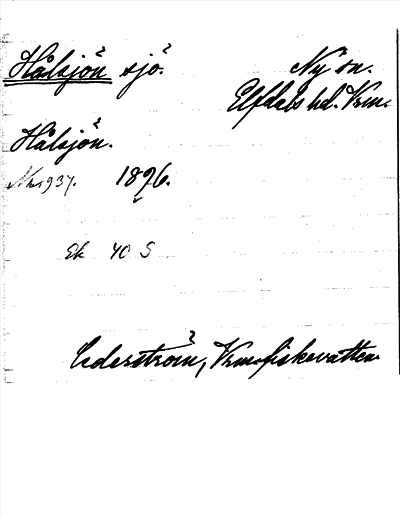 Hålsjön sjö.
Ny sn.
Elfdals hd. Vrm.
Hålsjön.
1896.
Ek 40 S
Cederström, Vrm. fiskevatten